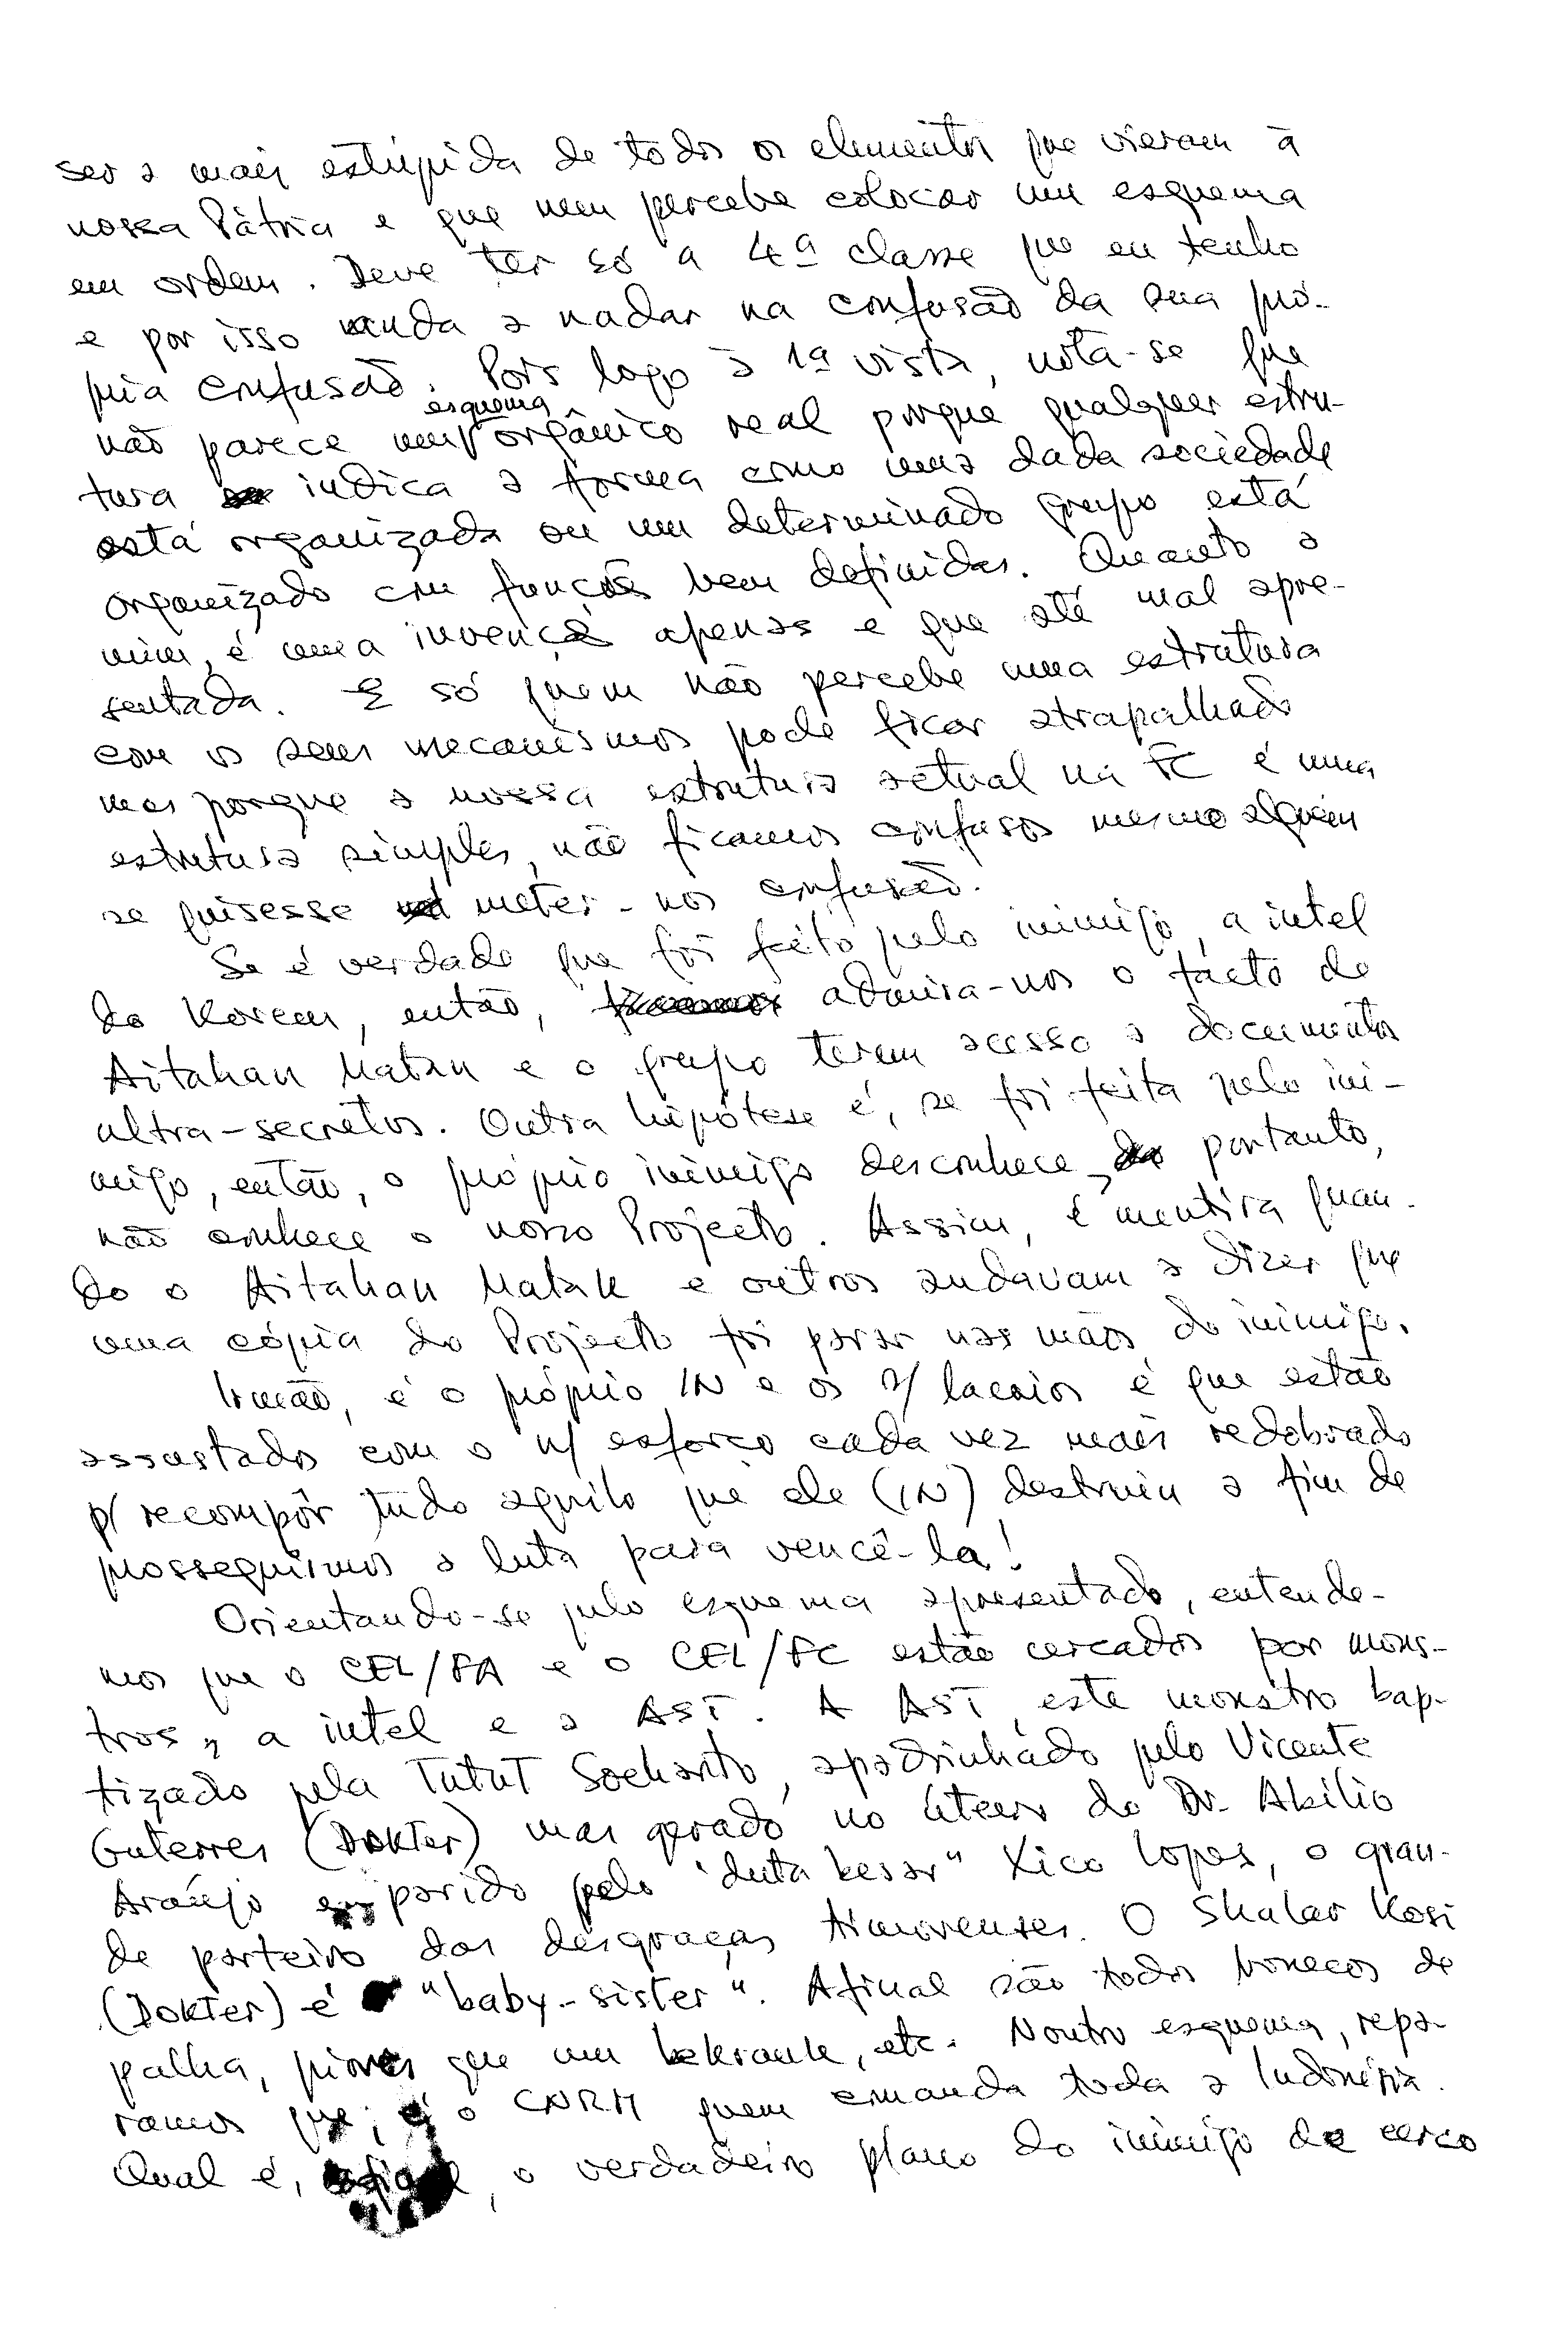 ser a mais estúpida de todos os elementos que vieram à
nossa Pátria e que nem percebe colocar um esquema
em ordem. Deve ter só a 4ª classe que eu tenho
e por isso anda a nadar na confusão da sua pró-
pria confusão. Pois logo à 1ª vista, nota-se que
não parece um esquema orgânico real porque qualquer estru-
tura indica a forma como uma dada sociedade
está organizada ou um determinado grupo está
organizado com funções bem definidas. Quanto a
mim, é uma invenção apenas e que até mal apre-
sentada. E só quem não percebe uma estrutura
com os seus mecanismos pode ficar atrapalhado
mas porque a nossa estrutura actual na FC é uma
estrutura simples, não ficamos confusos mesmo alguém
se quisesse meter-nos confusão.
Se é verdade que foi feito pelo inimigo, a intel
do Korem, então, admira-nos o facto de
Aitahan Matak e o grupo terem acesso a documentos
ultra-secretos. Outra hipótese é, se foi feita pelo ini-
migo, então, o próprio inimigo desconhece, portanto,
não conhece o nosso Projecto. Assim, é mentira quan-
do o Aitahan Matak e outros andavam a dizer que
uma cópia do Projecto foi parar nas mãos do inimigo.
Irmão, é o próprio IN e os s/ lacaios é que estão
assustados com o n/ esforço cada vez mais redobrado
p/ recompôr tudo aquilo que ele (IN) destruiu a fim de
prosseguirmos a luta para vencê-la!
Orientando-se pelo esquema apresentado, entende-
mos que o CEL/FA e o CEL/FC estão cercados por mons-
tros, a intel e a AST. A AST, este monstro bap-
tizado pela Tutut Soeharto, apadrinhado pelo Vicente
Guterres (Dokter) mas gerado no útero do Dr. Abílio
Araújo parido pelo "duta besar" Xico Lopes, o gran-
de parteiro das desgraças timorenses. O Skalar Kosi
(Dokter) é "baby-sister". Afinal são todos bonecos de
palha, piores que um , etc. Noutro esquema, repa-
ramos que, é o CNRM quem comanda toda a Indonésia.
Qual é, , o verdadeiro plano do inimigo de cerco